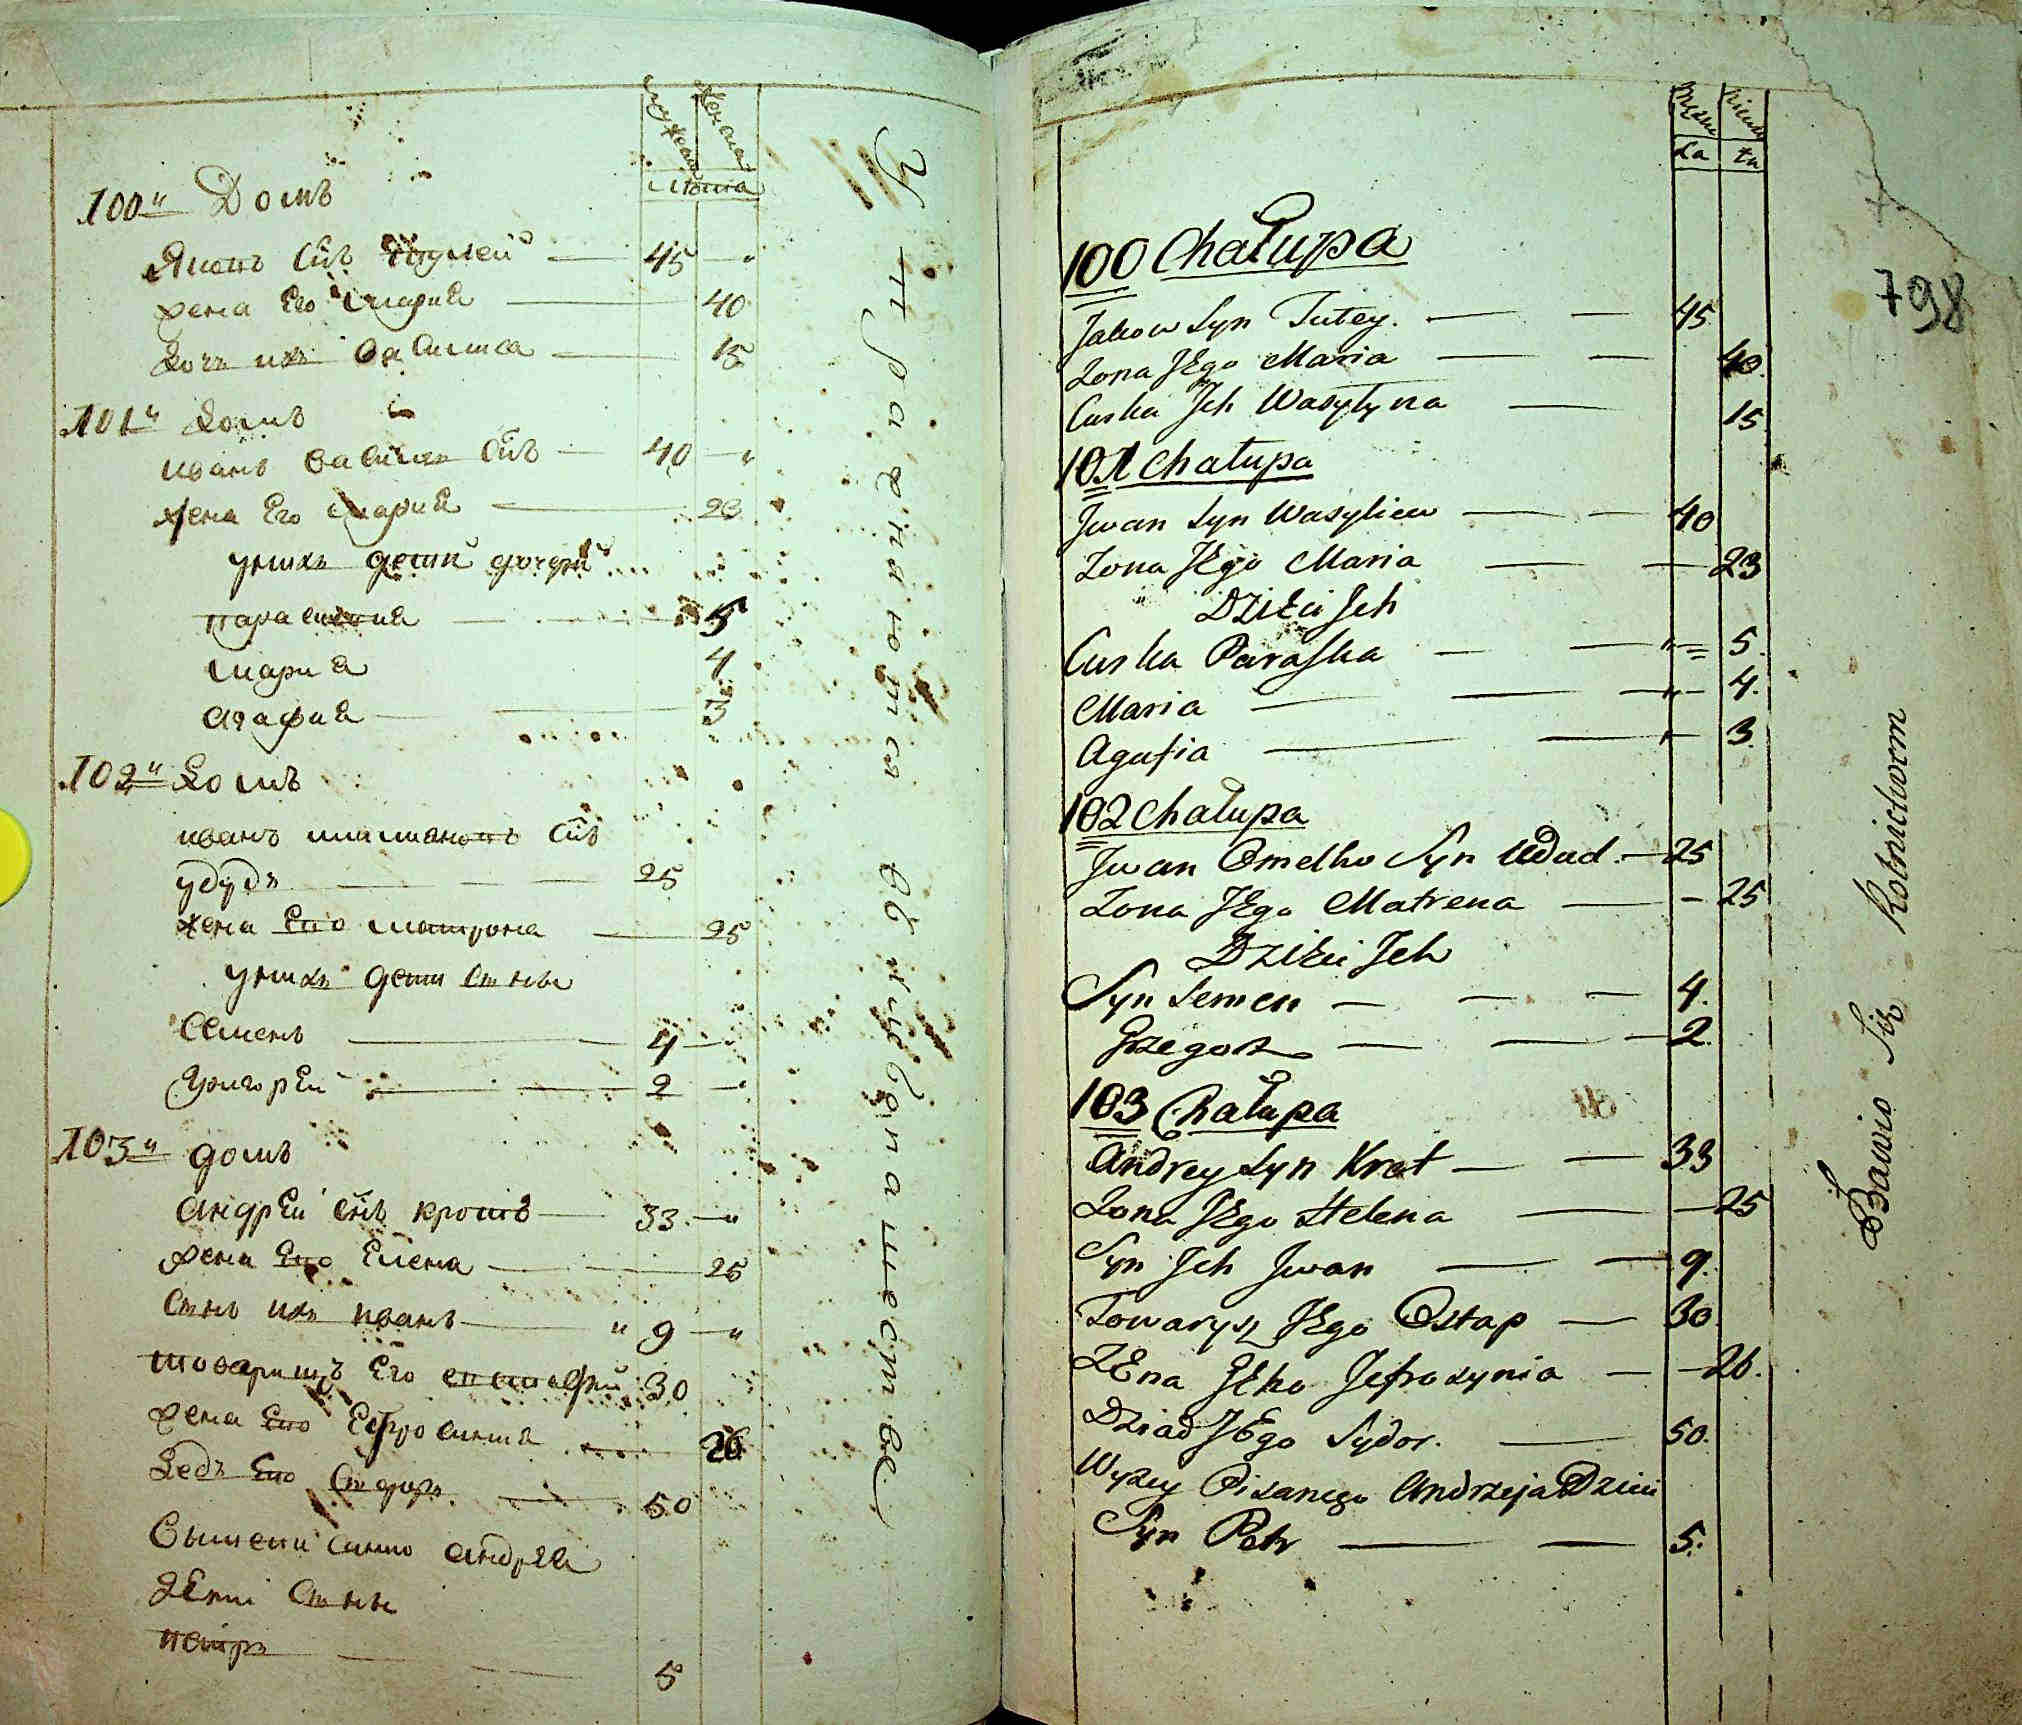 мужеска женска
лѣта
100" Домъ
Яковъ Сн҃ъ Тутей 45 "
жена Его Мария 40
Дочь ихъ Василиса 15
101" Домъ
иванъ Василия Сн҃ъ 40 "
жена Его Мария 23
у нихъ дети дочери
параскевия 5
Мария 4
Агафия 3
102" Домъ
иванъ Сн҃ъ
удудъ 25
жена Его Матрона 25
у нихъ дети Сыны
Семенъ 4 "
Григорей 2 "
103" Домъ
Андрей Сн҃ъ кротъ 33 "
жена Его Елена 25
Сынъ ихъ иванъ " 9 "
товарищъ Его Евстафий 30
жена Его Ефросиния 26
Дедъ Его Сидоръ 50
Вышеписанного Андрея
Дети Сыны
петръ 5
Упражняются въ хлебопашестве
Męzka Niewia
La ta
100 Chałupa
Jakow Syn Tutey. 45
Zona JEgo Maria 40.
Curka Jch Wasylyna 15.
101 Chałupa
Jwan Syn Wasyliew 40
Zona JEgo Maria 23
DziEci Jch
Curka Paraska " 5.
Maria " 4.
Agafia " 3.
102 Chałupa
Jwan Omelko Syn Udud. 25
Zona JEgo Matrena 25
DziEci Jch
Syn Semen 4.
Grzegorz 2.
103 Chałupa
Andrey Syn Krot 33
Zona JEgo Helena 25
Syn Jch Jwan 9.
Towarysz JEgo Ostap 30.
ZEna JEho Jefrosynia 26.
Dziad JEgo Sydor. 50.
Wyzey Pisanego Andrzeja Dzieci
Syn Petr 5.
7
798
Bawio Się Rolnictwem